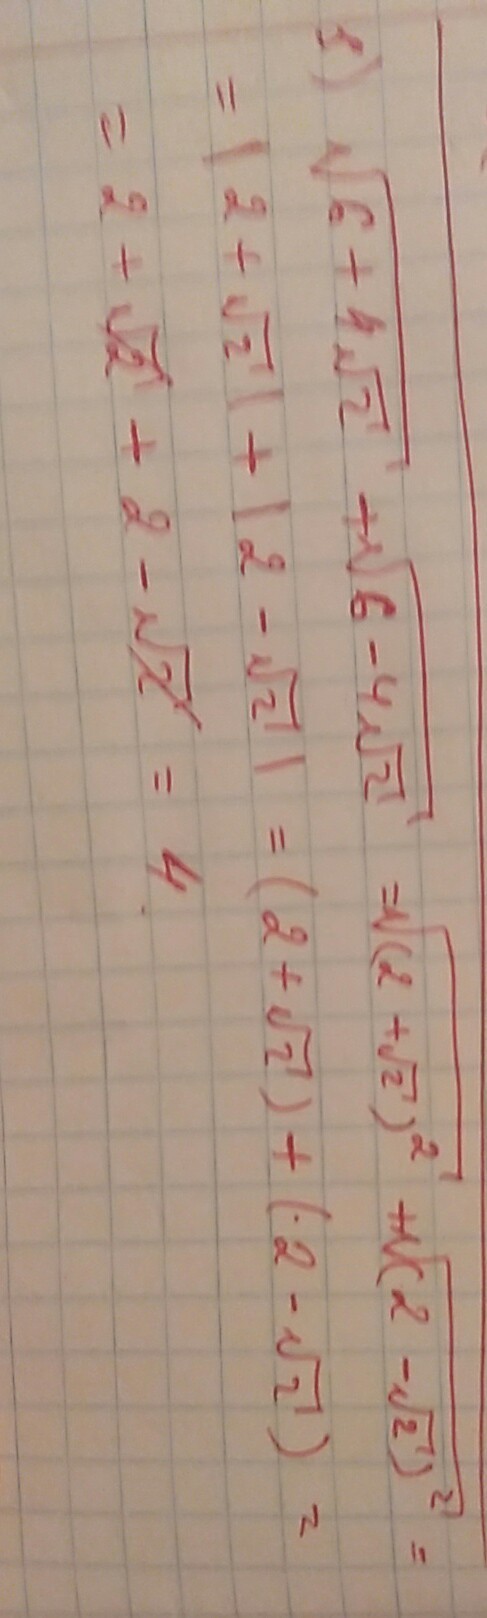 8) √(6 + 4√2) + √(6 - 4√2) = √(2 + √2)² + √(2 - √2)² =
= |2 + √2| + |2 - √2| = (2 + √2) + (2 - √2) =
= 2 + √2 + 2 - √2 = 4